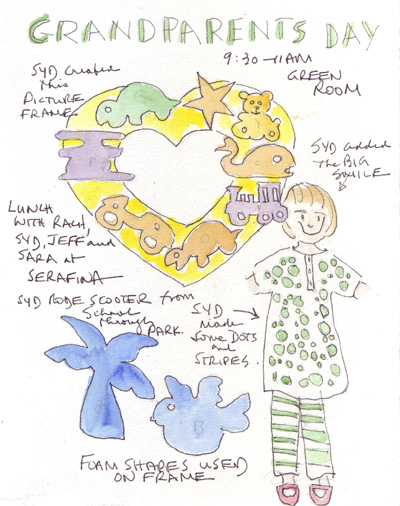 GRANDPARENTS DAY
9:30-11AM
GREEN
ROOM
SYD Created
This
PICTURE
FRAME
SYD added
the BIG
SMILE
LUNCH
WITH RACH,
SYD, JEFF and
SARA at
SERAFINA
SYD RODE SCOOTER from
School
through
PARK.
SYD
Made
some DOTS
and
STRIPES.
FOAM SHAPES USED
ON FRAME